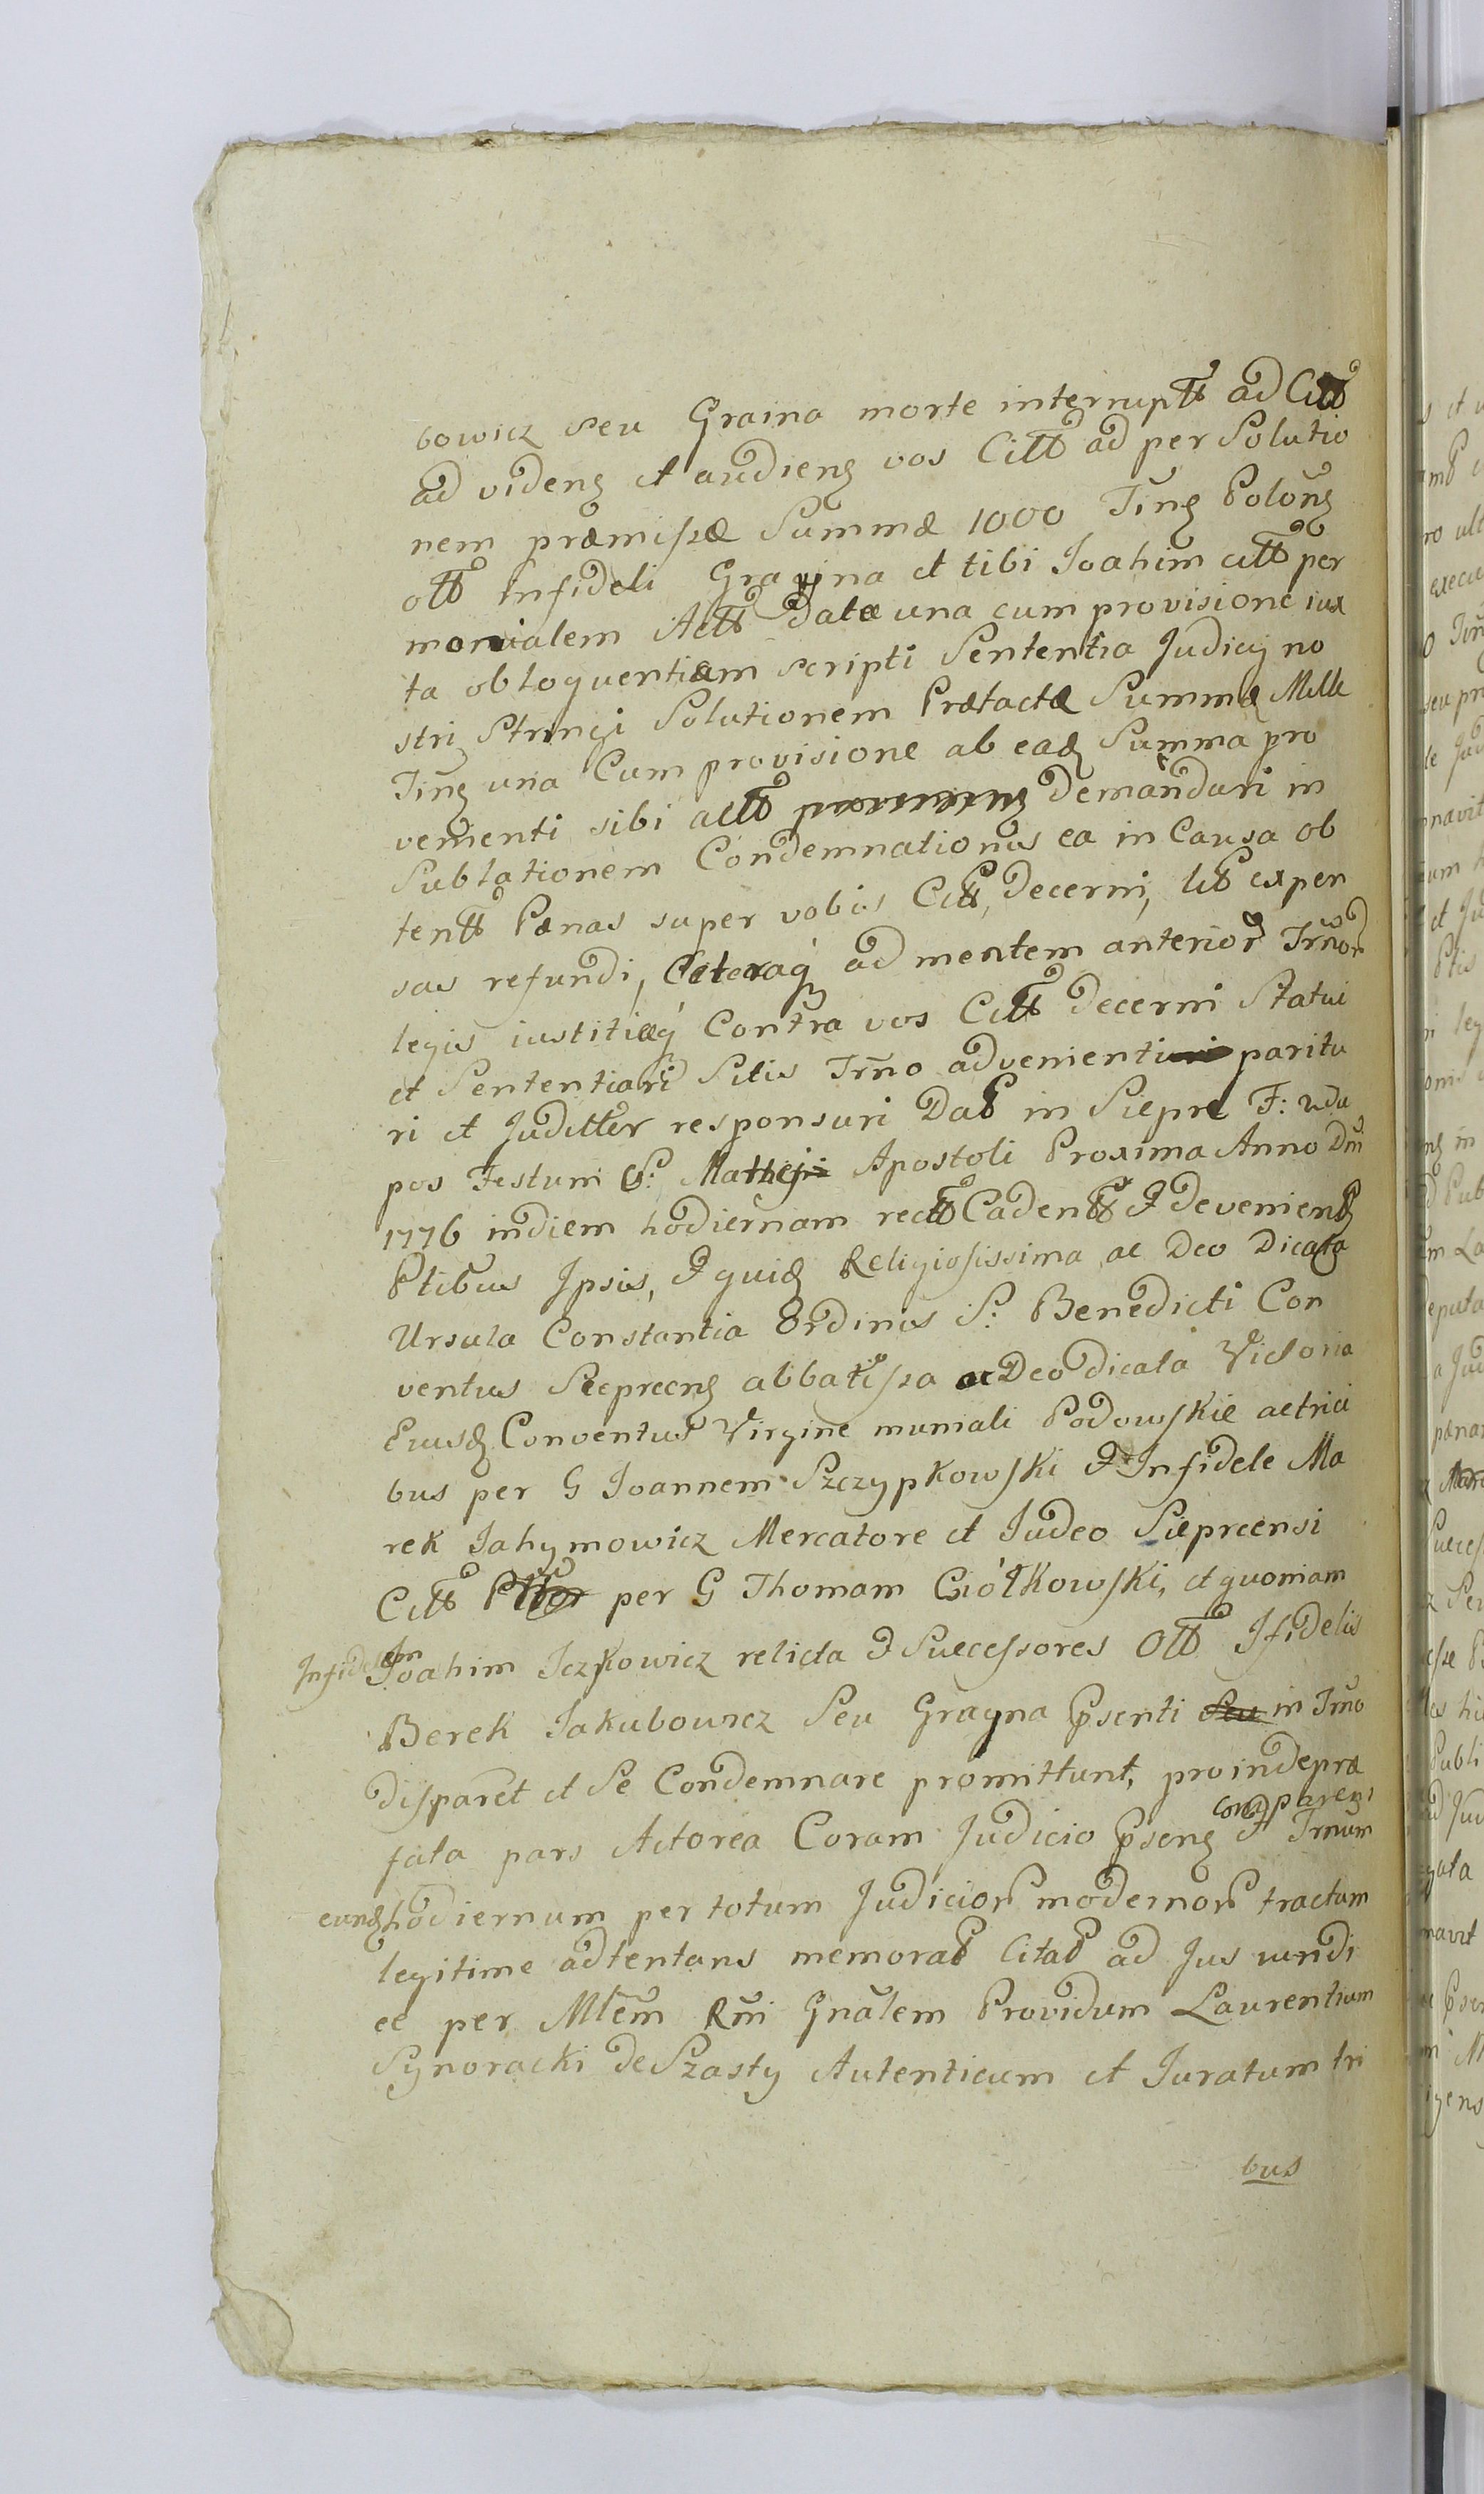 bowicz seu Graina morte interruptt ad Citt
ad videnꝫ et audienꝫ vos Citt ad per Solutio
nem præmissæ Summæ 1000 Tinꝫ Polonꝫ
ott Infideli Grayna et tibi Joahim citt per
monialem Actt datæ una cum provisione iux
ta obloquentiam scripti Sententia Judicij no
stri Stringi Solutionem Prætactæ Summæ Mille
Tinꝫ una Cum provisione ab eadꝫ Summa pro
venienti sibi actt demandari in
Sublationem Condemnationis ea in Causa ob
tentt Pænas super vobis Citt, decerni, litt expen
sas refundi, Cæteraq́ ad mentem anterior Trnor
legis iustitiæq́ Contra vos Citt decerni Statui
et Sententiari Sitis Trno advenienti paritu
ri et Juditter responsuri Datt in Siepre F: 2da
pos Festum S: Mathei Apostoli Proxima Anno Dni
1776 indiem hodiernam rectt Cadentt & devenienꝫ
Ptibus Ipsis, & quidꝫ Religiosissima ac Deo Dicata
Ursula Constantia Ordinis S: Benedicti Con
ventus Sieprecnꝫ abbatissa ac Deo dicata Victoria
Eiusdꝫ Conventus Virgine muniali Podowskie actrici
bus per G Joannem Szczypkowski & Infidele Ma
rek Jahymowicz Mercatore et Judeo Siepreensi
Citt per G Thomam Ciółkowski, et quoniam
Infidelem Joahim Iczkowicz relicta & Successores Ott Ifidelis
Berek Jakubowicz Seu Grayna Psenti in Trno
disparet et Se Condemnare promittunt, proindepræ
fata pars Actorea Coram Judicio Psenꝫ comparens & Trnum
eundꝫ hodiernum per totum Judicior modernor tractum
legitime adtentans memoratt Citatt ad Jus iundi
ce per Mlem Rni Gnalem Providum Laurentium
Synoracki de Szasty Autenticum et Juratum tri
bus